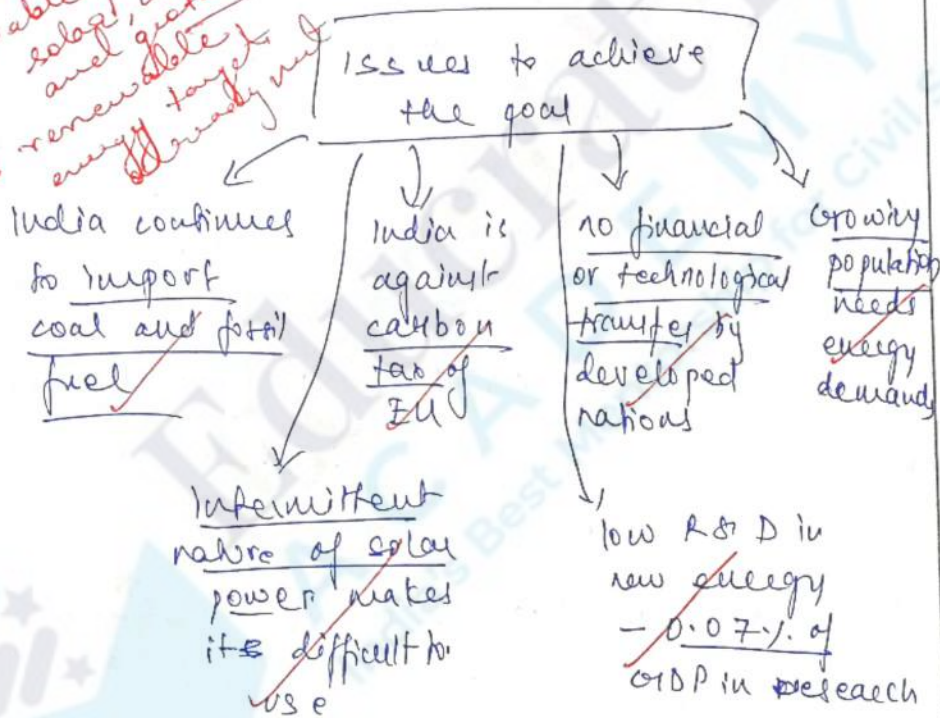 able
solar,
and
renewable
energy target
already met
Issues to achieve
the goal
India continues
to import
coal and fossil
fuel
India is
against
carbon
tax of
EU
no financial
or technological
transfer by
developed
nations
Growing
population
needs
energy
demands
Intermittent
nature of solar
power makes
it difficult to
use
low R & D in
new energy
- 0.07% of
GDP in research
Educrat
ACADEMY
India's Best M
for Civil S